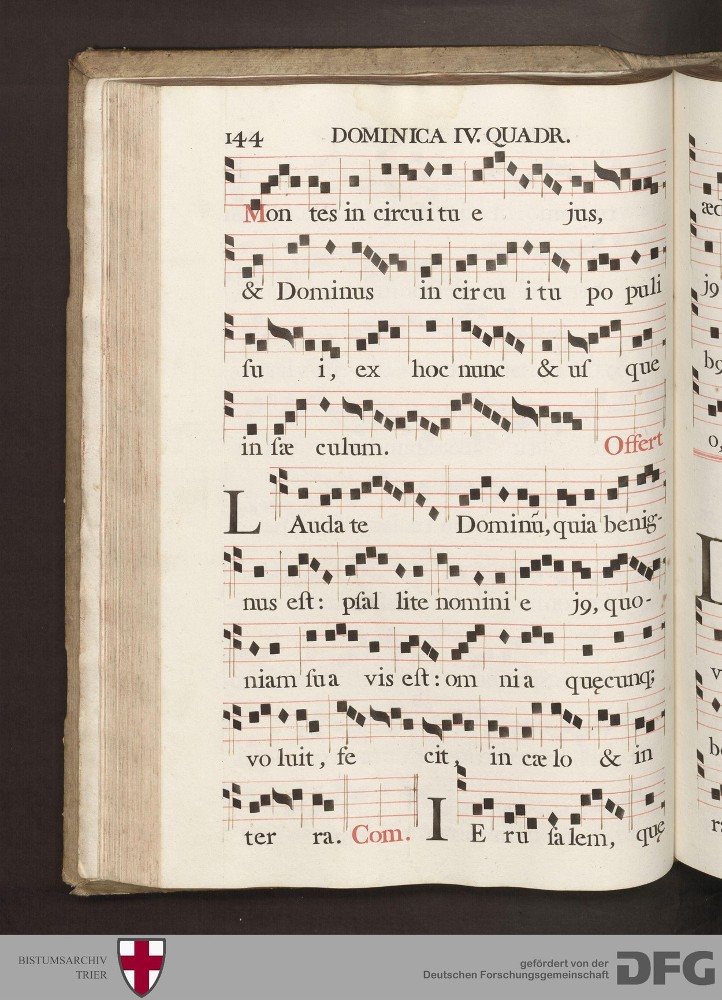 144 DOMINICA IV. QUADR.
Mon tes in circuitu e jus,
& Dominus in circu itu po puli
ſu i, ex hoc nunc & uſ que
in ſæ culum. Offert
LAudate Dominũ, quia benig-
nus eſt: pſal lite nomini e j9, quo-
niam ſua vis eſt: om nia quęcunq;
vo luit, fe cit, in cæ lo & in
ter ra. Com. IE ru ſalem, quę
æc
j9
b9
o,
v
b
r
BISTUMSARCHIV
TRIER
gefördert von der
Deutschen Forschungsgemeinschaft
DFG